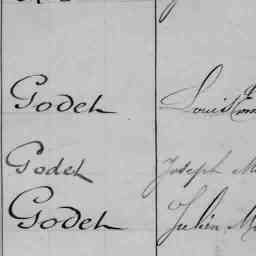 Godet Louis
Godet Joseph
Godet Julien